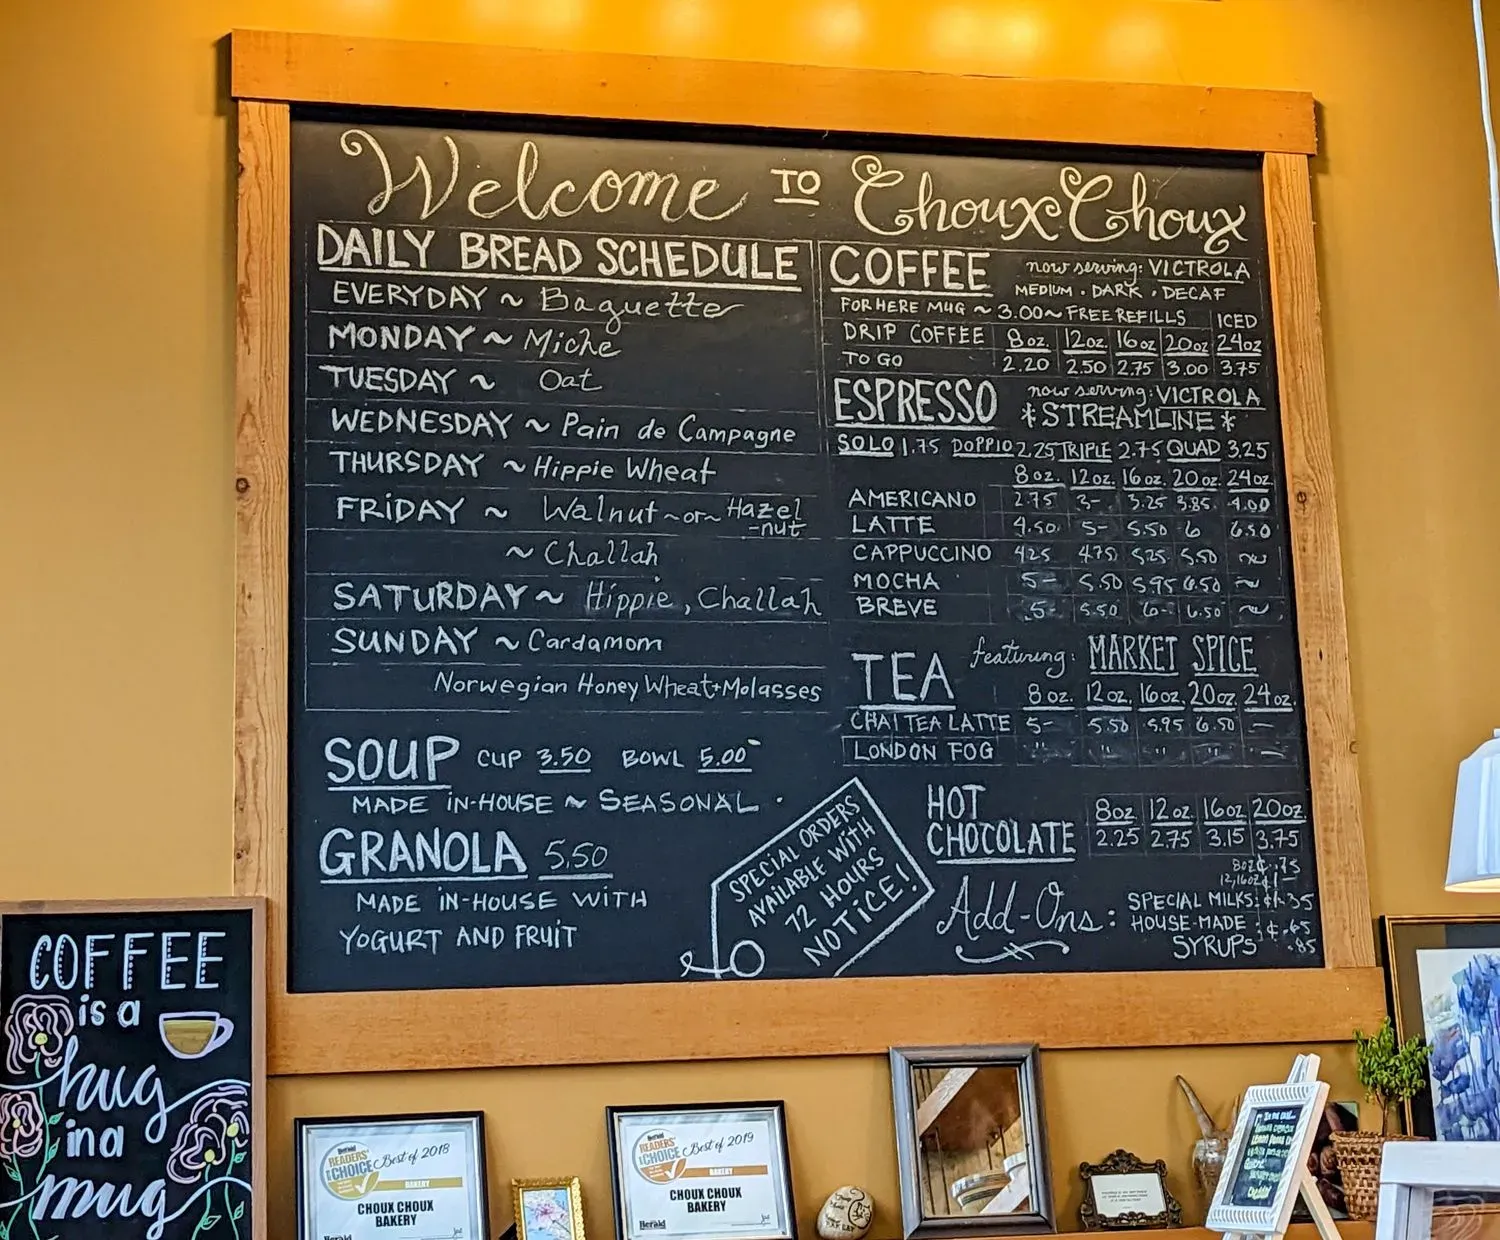 Welcome TO Choux Choux
DAILY BREAD SCHEDULE
EVERYDAY ~ Baguette
MONDAY ~ Miche
TUESDAY ~ Oat
WEDNESDAY ~ Pain de Campagne
THURSDAY ~ Hippie Wheat
FRIDAY ~ Walnut ~or~ Hazel
-nut
~ Challah
SATURDAY ~ Hippie, Challah
SUNDAY ~ Cardamom
Norwegian Honey Wheat+Molasses
SOUP CUP 3.50 BOWL 5.00
MADE IN-HOUSE ~ SEASONAL
GRANOLA 5.50
MADE IN-HOUSE WITH
YOGURT AND FRUIT
SPECIAL ORDERS
AVAILABLE WITH
72 HOURS
NOTICE!
COFFEE now serving: VICTROLA
MEDIUM . DARK . DECAF
FOR HERE MUG ~ 3.00 ~ FREE REFILLS ICED
DRIP COFFEE 8oz. 12oz. 16oz 20oz 24oz
TO GO 2.20 2.50 2.75 3.00 3.75
ESPRESSO now serving: VICTROLA
*STREAMLINE*
SOLO 1.75 DOPPIO 2.25 TRIPLE 2.75 QUAD 3.25
8oz. 12oz. 16oz. 20oz. 24oz.
AMERICANO 2.75 3- 3.25 3.85 4.00
LATTE 4.50 5- 5.50 6 6.50
CAPPUCCINO 4.25 4.75 5.25 5.50 ~
MOCHA 5- 5.50 5.95 6.50 ~
BREVE 5- 5.50 6- 6.50 ~
TEA featuring: MARKET SPICE
8oz. 12oz. 16oz. 20oz. 24oz.
CHAI TEA LATTE 5- 5.50 5.95 6.50 —
LONDON FOG " " " " —
HOT
CHOCOLATE
8oz 12oz 16oz 20oz.
2.25 2.75 3.15 3.75
Add-Ons:
SPECIAL MILKS:
HOUSE-MADE
SYRUPS
.85
COFFEE
is a
hug
in a
mug
Herald
READERS'
CHOICE Best of 2018
BAKERY
CHOUX CHOUX
BAKERY
Herald
READERS'
CHOICE Best of 2019
BAKERY
CHOUX CHOUX
BAKERY
Herald